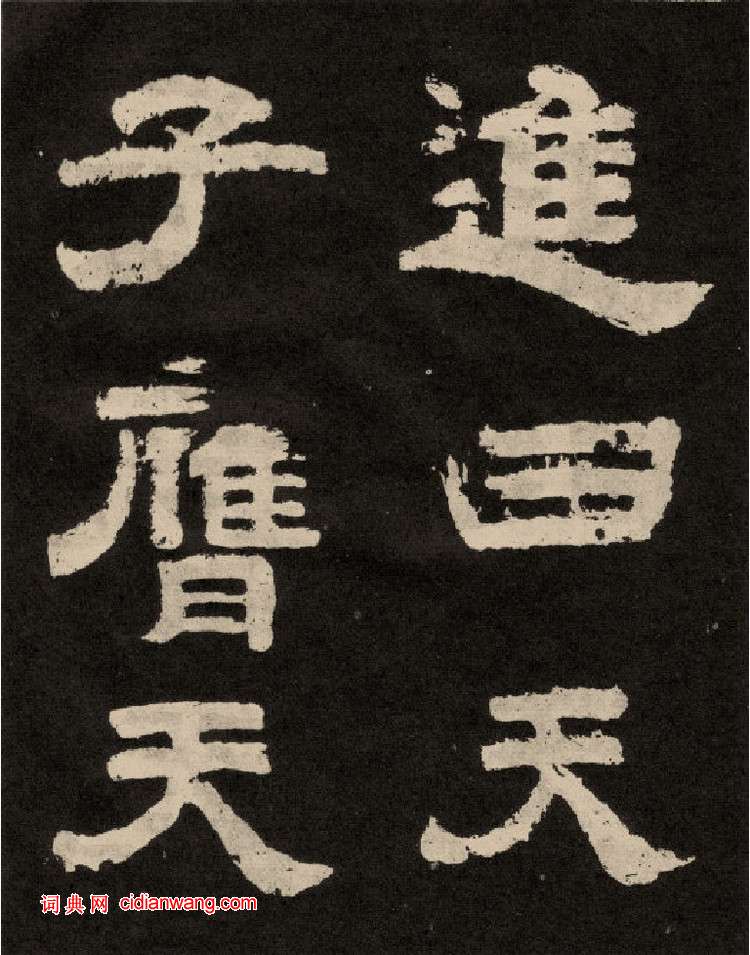 進曰天
子膺天
词典网 cidianwang.com